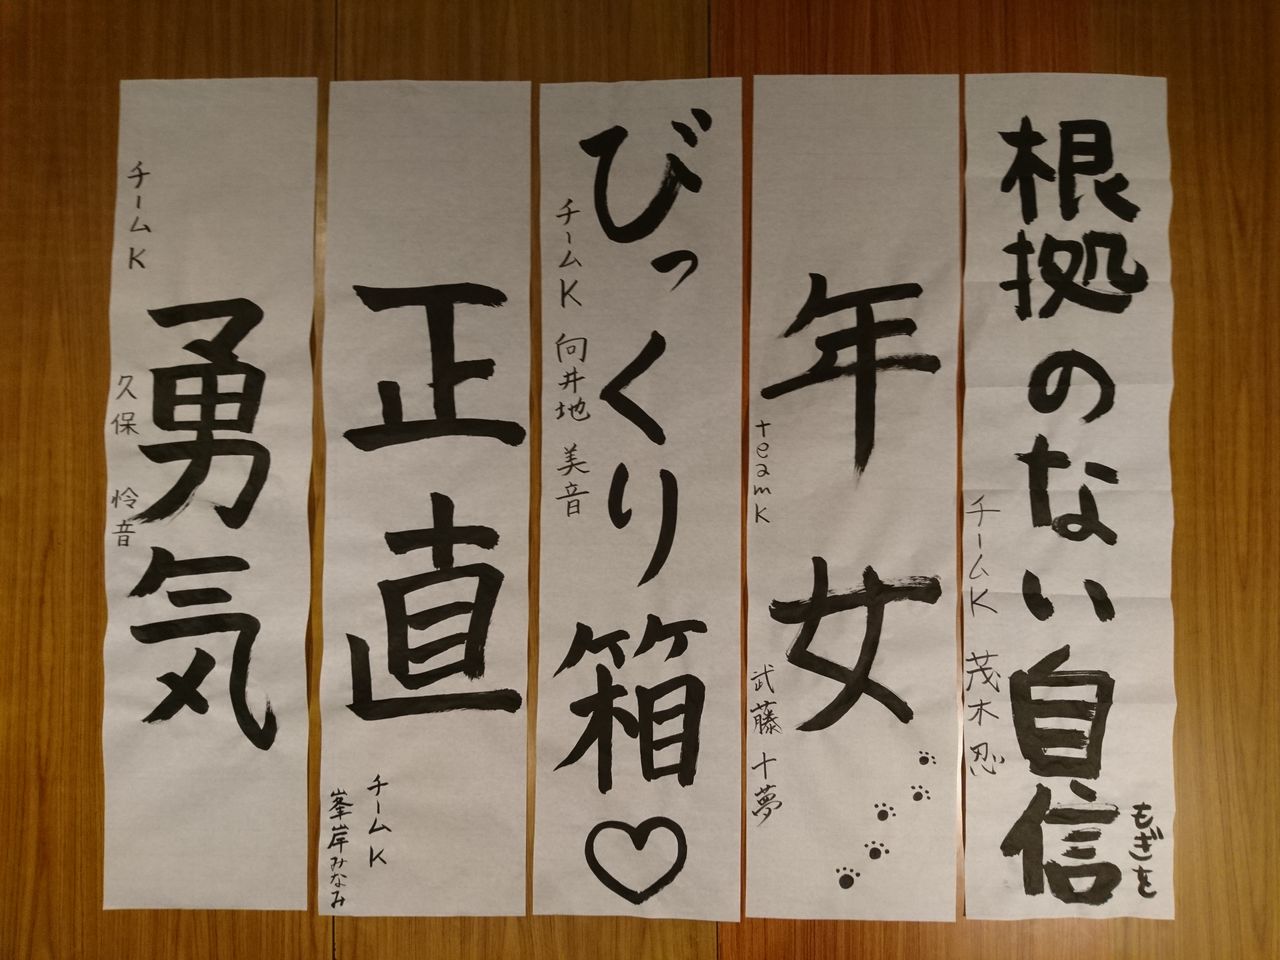 根拠のない自信
もぎを
チームK 茂木 忍
年女
teamK 武藤 十夢
びっくり箱♡
チームK 向井地 美音
正直
チームK
峯岸みなみ
勇気
チームK 久保 怜音